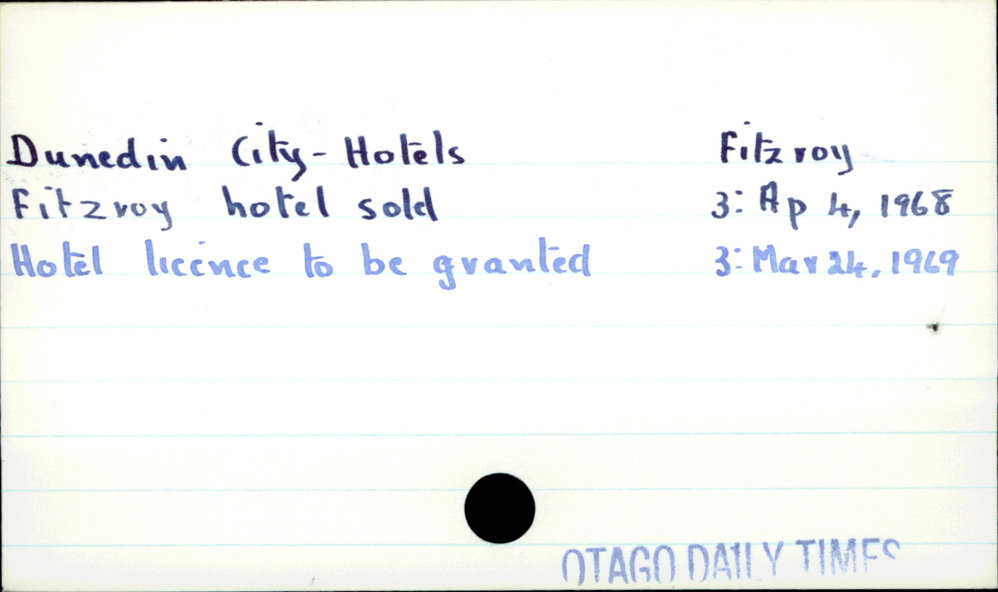 Dunedin City - Hotels Fitzroy
Fitzroy hotel sold 3: Ap 4, 1968
Hotel licence to be granted 3: Mar 24, 1969
OTAGO DAILY TIMES